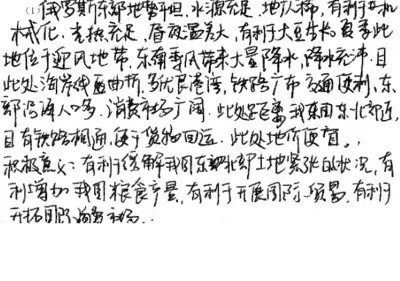 (1) 俄罗斯东部地势平坦,水源充足,地广人稀,有利于机
械化。光热充足,昼夜温差大,有利于大豆生长。夏季此
地位于迎风地带,东南季风带来大量降水,降水充沛。且
此处海岸线曲折,多优良港湾,铁路广布,交通便利,东
部沿海人口多,消费市场广阔。此处距离我东北部近,
且有铁路相通,便于货物回运。此处地价便宜。
积极意义:有利于缓解我国东北部土地紧张的状况,有
利增加我国粮食产量,有利于开展国际贸易,有利于
开拓国际海外市场.